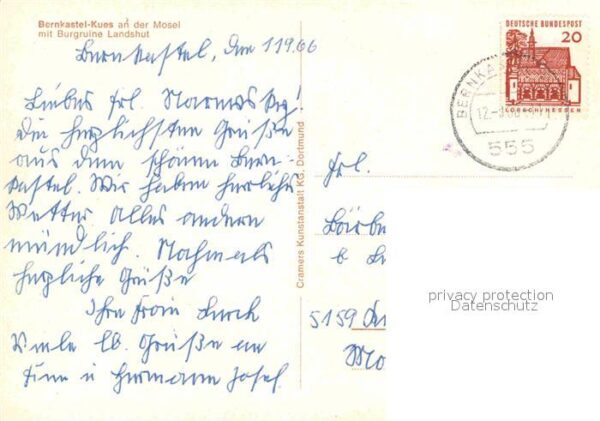 Bernkastel-Kues an der Mosel
mit Burgruine Landshut
Bernkastel, den 11.9.66
Liebes Frl.
Die herzlichsten Grüße
aus dem schönen Bern-
kastel. Wir haben herrliches
Wetter alles andere
mündlich. Nochmals
herzliche Grüße
Ihre Frau
Viele lb. Grüße an
u Hermann Josef
Cramers Kunstanstalt KG, Dortmund
DEUTSCHE BUNDESPOST
20
LORSCH/HESSEN
BERNKA
12.-9.66
555
Frl.
5159
privacy protection
Datenschutz